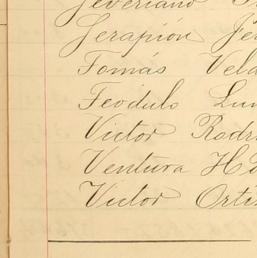 Severiano
Serapión
Tomás Vela
Teódulo Lun
Victor Rodr
Ventura He
Victor Orti